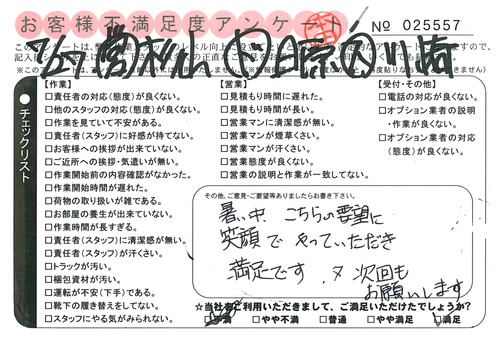 お客様不満足度アンケート
No 025557
チェックリスト
【作業】
□責任者の対応(態度)が良くない。
□他のスタッフの対応(態度)が良くない。
□作業を見ていて不安がある。
□責任者(スタッフ)に好感が持てない。
□お客様への挨拶が出来ていない。
□ご近所への挨拶・気遣いが無い。
□作業開始前の内容確認がなかった。
□作業開始時間が遅れた。
□荷物の取り扱いが雑である。
□お部屋の養生が出来ていない。
□作業時間が長すぎる。
□責任者(スタッフ)に清潔感が無い。
□責任者(スタッフ)が汗くさい。
□トラックが汚い。
□梱包資材が汚い。
□運転が不安(下手)である。
□靴下の履き替えをしてない。
□スタッフにやる気がみられない。
【営業】
□見積もり時間に遅れた。
□見積もり時間が長い。
□営業マンに清潔感が無い。
□営業マンが煙草くさい。
□営業マンが汗くさい。
□営業態度が良くない。
□営業の説明と作業が一致してない。
【受付・その他】
□電話の対応が良くない。
□オプション業者の説明
・作業が良くない。
□オプション業者の対応
(態度)が良くない。
その他、ご意見・ご要望等ありましたらお書き下さい。
暑い中、こちらの要望に
笑顔で やっていただき
満足です。
次回も
お願いします
☆当社をご利用いただきまして、ご満足いただけたでしょうか?
□不満 □やや不満 □普通 □やや満足 □満足